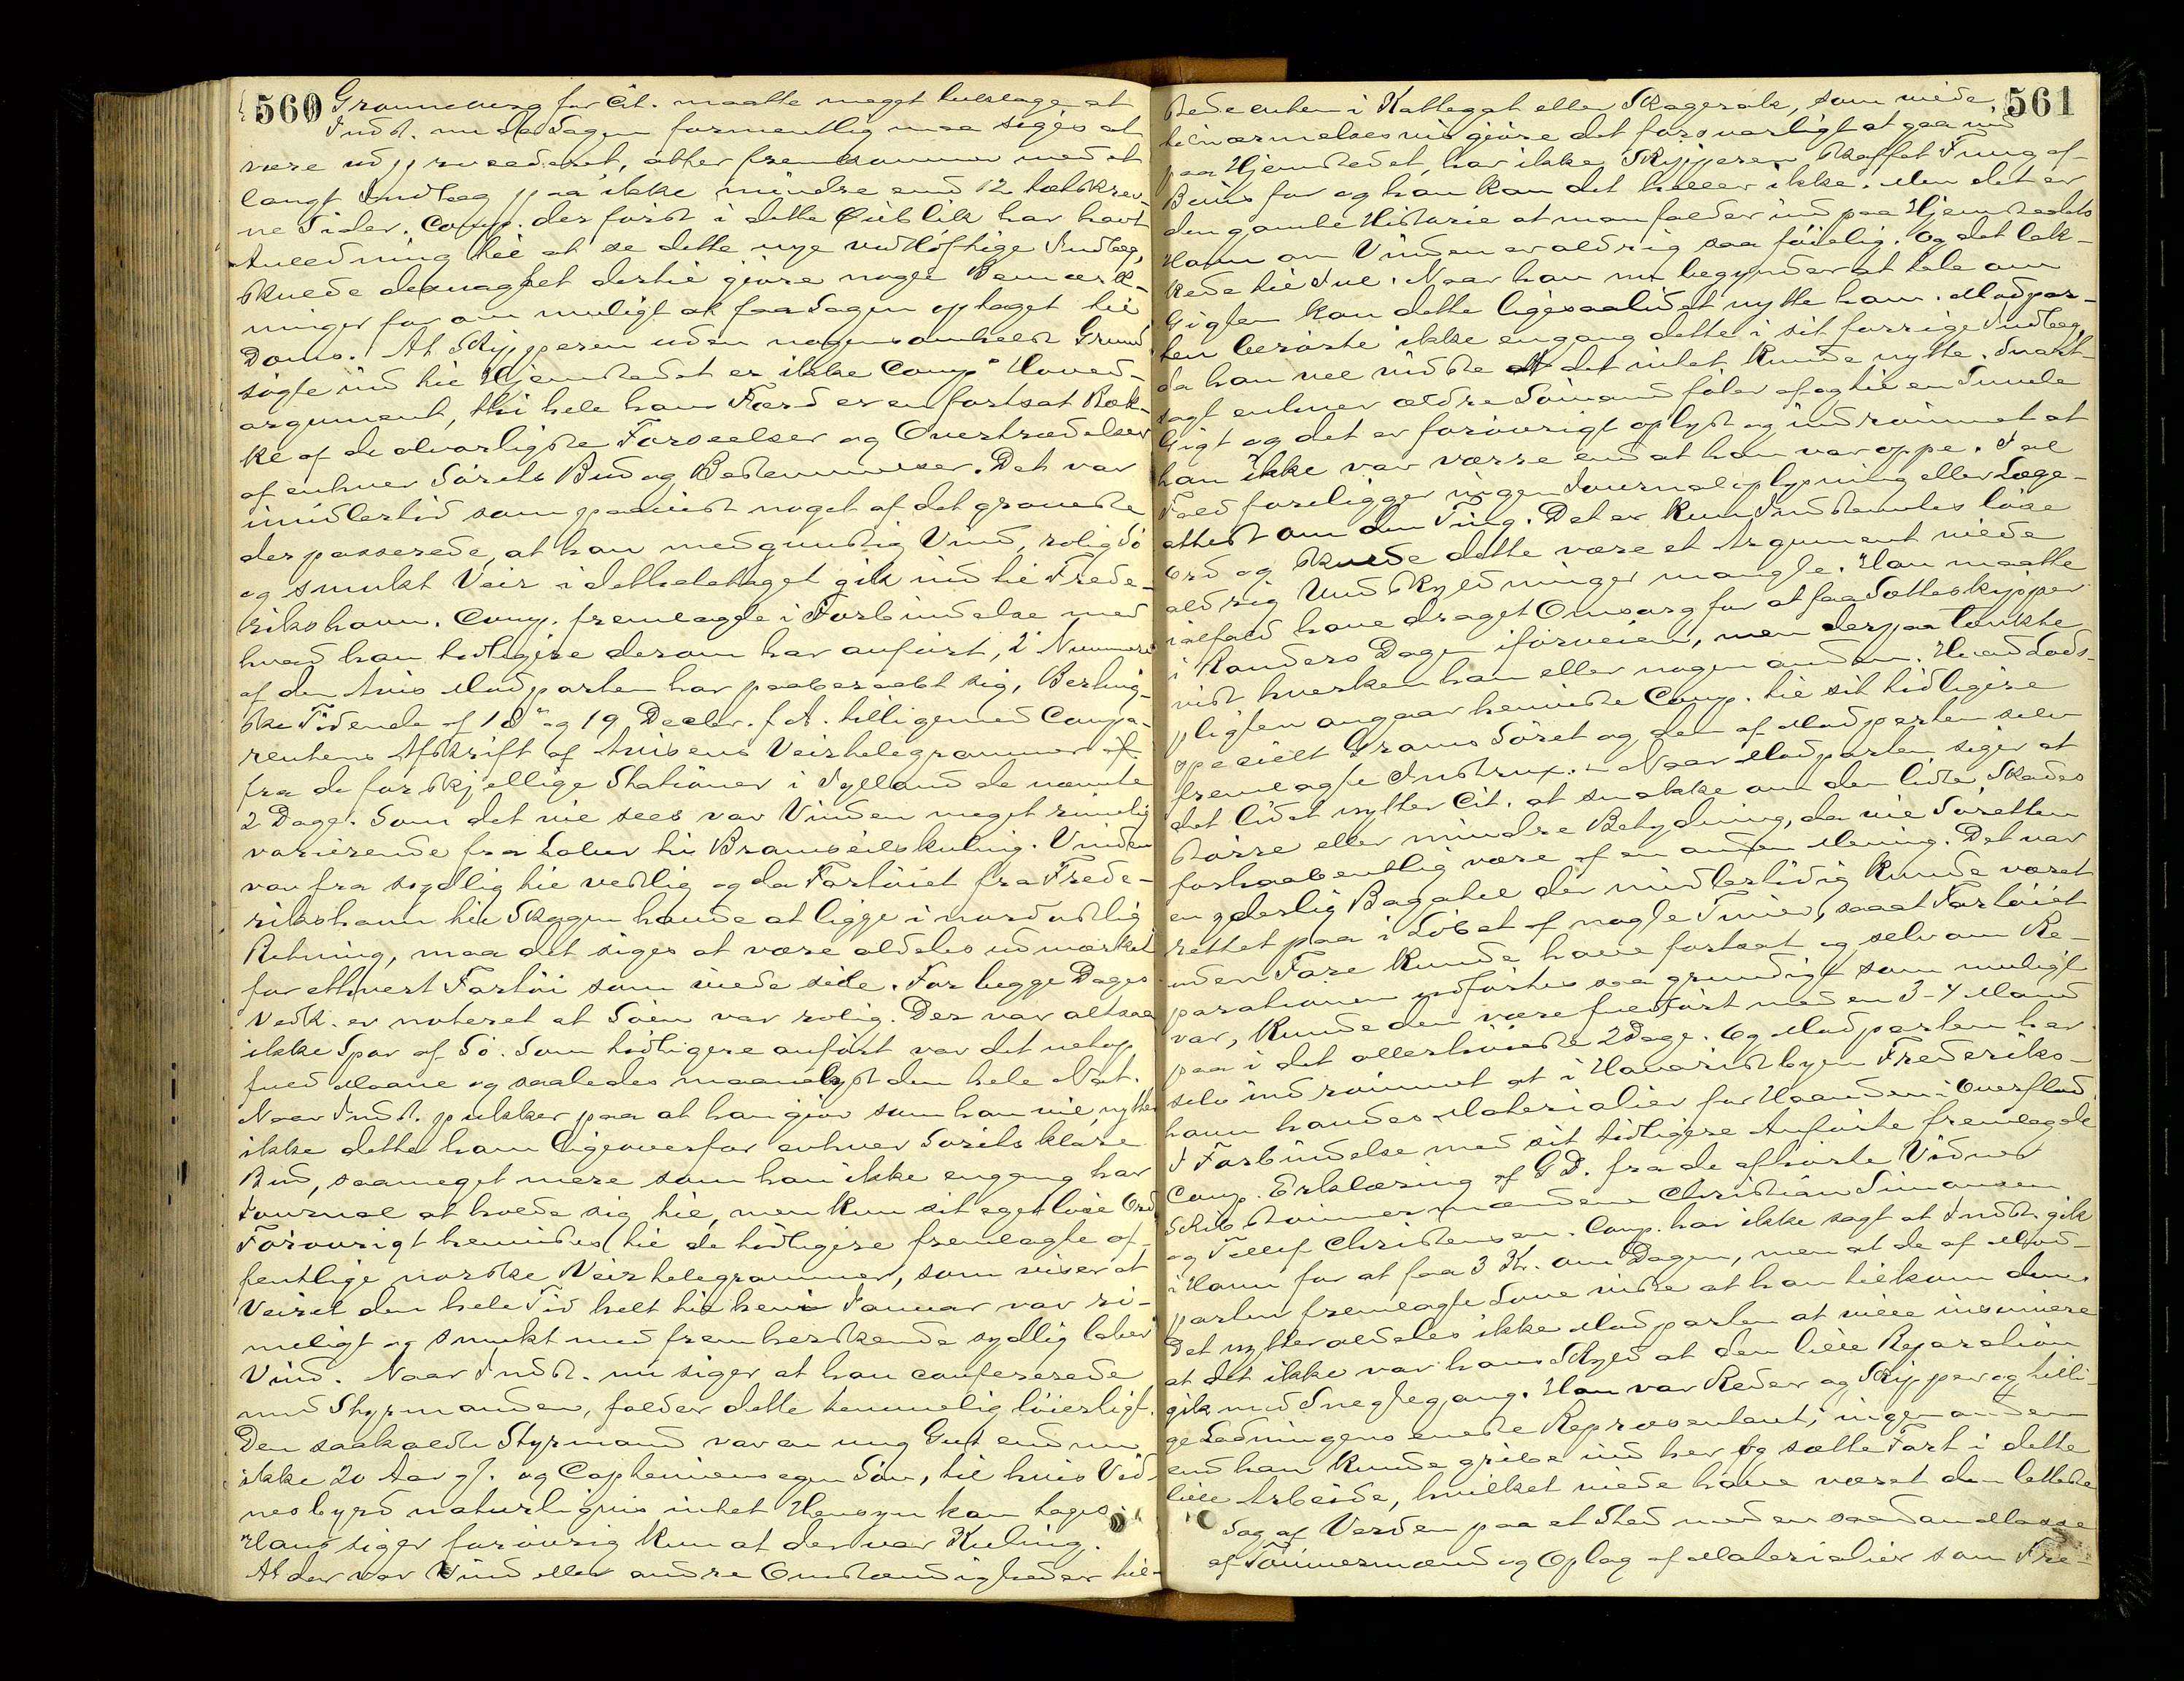 560 Grønneberg for Cit. maatte meget beklage at
Indst. nu da Sagen formentlig maa siges at
være udprocederet, atter fremkommer med et
langt Indlæg paa ikke mindre end 12 tætskrev-
ne Sider. Comp. der først i dette Øieblik har havt
Anledning til at se dette nye vidtløftige Indlæg,
skulde desuagtet dertil gjøre nogle Bemærk-
ninger for om muligt at faa Sagen optaget til
Doms. At Skipperen uden nogensomhelst Grund
søgte ind til Hjemstedet er ikke Comp. Hoved-
argument, thi hele hans Færd er en fortsat Ræk-
ke af de alvorligste Forseelser og Overtrædelser
af enhver Sørets Bud og Bestemmelser. Det var
imidlertid som paavist noget af det groveste
der passerede, at han med gunstig Vind, rolig Sø
og smukt Veir i detheletaget gik ind til Frede-
rikshavn. Comp. fremlagde i Forbindelse med
hvad han tidligere derom har anført, 2 Nummere
af den Avis Modparten har paaberaabt sig, Berling-
ske Tidende af 18 og 19 Decbr. f. A. tilligemed Compa-
rentens Afskrift af Avisens Veirtelegrammer
fra de forskjellige Stationer i Jylland de nævnte
2 Dage. Som det vil sees var Vinden meget rimelig
varierende fra Laber til Bramseilskuling. Vinden
var fra sydlig til vestlig og da Fartøiet fra Frede-
rikshavn til Skagen havde at ligge i nordostlig
Retning, maa det siges at være aldeles udmærket
for ethvert Fartøi som vilde seile. For begge Dages
Vedk. er noteret at Søen var rolig. Der var altsaa
ikke Spor af Sø. Som tidligere anført var det netop
fuld Maane og saaledes maanelyst den hele Nat.
Naar Indst. pukker paa at han gjør som han vil, nytter
ikke dette ham ligeoverfor enhver Sørets klare
Bud, saameget mere som han ikke engang har
Journal at holde sig til, men kun sit eget løse Ord
Forøvrigt henvistes til de tidligere fremlagte of-
fentlige norske Veirtelegrammer, som viser at
Veiret den hele Tid helt til hen i Januar var ri-
meligt og smukt med fremherskende sydlig laber
Vind. Naar Indst. nu siger, at han confererede
med Styrmanden, falder dette temmelig løierligt.
Den saakaldte Styrmand var en ung Gut endnu
ikke 20 Aar gl. og Capteinens egen Søn, til hvis Vid-
nesbyrd naturligvis intet Hensyn kan tages.
Hans siger forøvrig kun at der var Kuling.
At der var Vind eller andre Omstændigheder til-
561
stede enten i Kattegat eller Skagerak, som vilde
tilnærmelsesvis gjøre det forsvarligt at gaa ind
paa Hjemstedet, har ikke Skipperen skaffet Fnug af
Bevis for og han kan det heller ikke. Men det er
den gamle Historie at man falder ind paa Hjemstedets
Havn om Vinden er aldrig saa føielig. Og det lak-
kede til Jul. Naar han nu begynder at tale om
Gigten kan dette ligesaalidet nytte ham. Modpar-
ten berørte ikke engang dette i sit forrige Indlæg,
da han vel vidste at det intet kunde nytte. Snart-
sagt enhver ældre Sømand føler af og til en Smule
Gigt og det er forøvrigt oplyst og indrømmet at
han ikke var værre end at han var oppe. I al
Fald foreligger ingen Journaloplysning eller Læge-
attest om den Ting. Det er kun Indstevntes løse
Ord og skulde dette være et Argument vilde
aldrig Undskyldninger mangle. Han maatte
ialfald have draget Omsorg for at faa Sætteskipper
i Randers Dagen iforveien, men derpaa tænkte
vist hverken han eller nogen anden. Hvad Lods-
pligten angaar henviste Comp. til sit tidligere
specielt Grams Søret og den af Modparten selv
fremlagte Instrux. – Naar Modparten siger at
det lidet nytter Cit. at snakke om den lidte Skades
større eller mindre Betydning, da vil Søretten
forhaabentlig være af en anden Mening. Det var
en yderlig Bagatel der midlertidig kunde været
rettet paa i Løbet af nogle Timer, saaat Fartøiet
uden Fare kunde have fortsat og selv om Re-
parationen udførtes saa grundigt som muligt
var, kunde den være fuldført med en 3-4 Mand
paa i det allerhøieste 2 Dage. Og Modparten har
selv indrømmet at i Havaristbyen Frederiks-
havn havdes Materialier for Haanden i Overflod.
I Forbindelse med sit tidligere Anførte fremlagde
Comp. Erklæring af G.D. fra de afhørte Vidner
Skibstømmermændene Christian Simonsen
og Tellef Christensen. Comp. har ikke sagt at Indst. gik
i Havn for at faa 3 Kr. om Dagen, men at de af Mod-
parten fremlagte Love viste at han tilkom dem.
Det nytter aldeles ikke Modparten at ville insinuere
at det ikke var hans Skyld at den lille Reparation
gik med Sneglegang. Han var Reder og Skipper og tilli-
ge Ladningens eneste Repræsentant; ingen anden
end han kunde gribe ind her og sætte Fart i dette
lille Arbeide, hvilket vilde have været den letteste
Sag af Verden paa et Sted med en saadan Masse
af Tømmermænd og Oplag af Materialier som Fre-